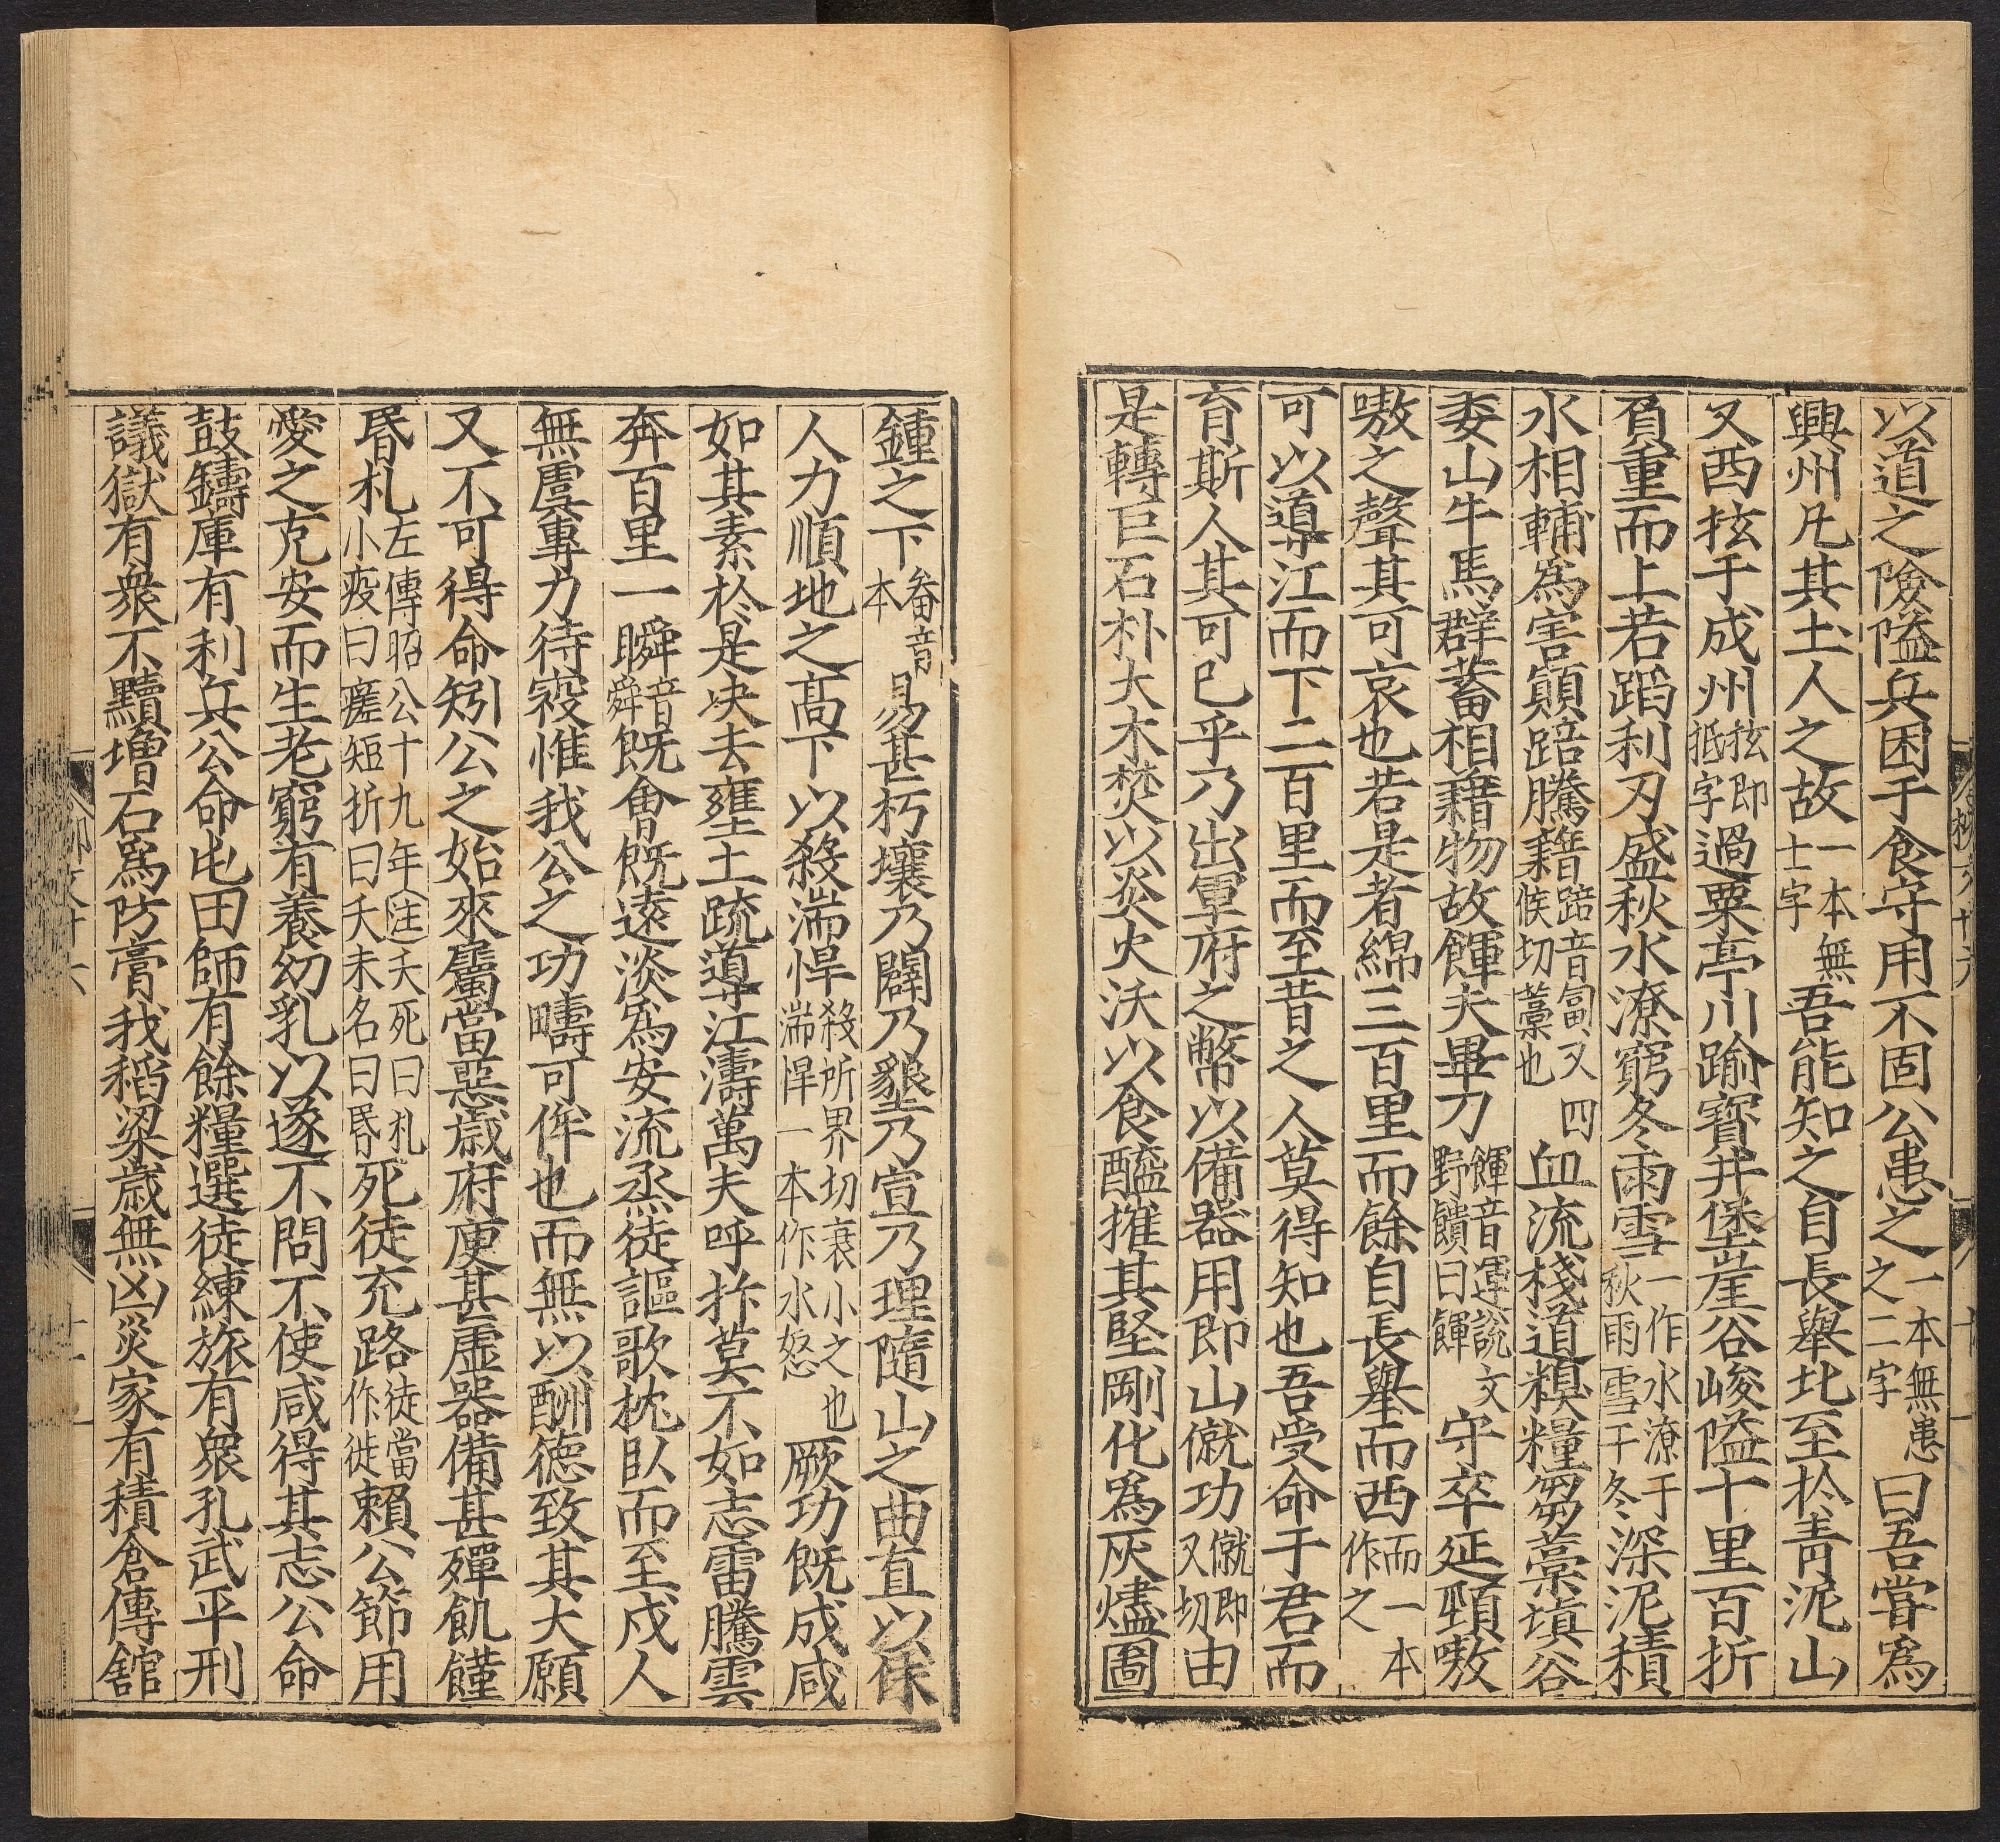 以道之險隘兵困于食守用不固公患之一本無患之二字曰吾嘗爲
興州凡其土人之故一本無士字吾能知之自長舉北至於青泥山
又西抵于成州抵即抵字過粟亭川踰寶井堡崖谷峻隘十里百折
負重而上若蹈利刃盛秋水潦窮冬雨雪一作水潦于秋雨雪于冬深泥積
水相輔爲害顛踣騰藉踣音匐又四候切藁也血流棧道糗糧芻藁塡谷
委山牛馬群蓄相藉物故餫夫畢力餫音運說文野饋曰餫守卒延頸嗷
嗷之聲其可哀也若是者綿三百里而餘自長舉而西而一本作之
可以導江而下二百里而至昔之人莫得知也吾受命于君而
育斯人其可已乎乃出軍府之幣以備器用即山僦功僦即又切由
是轉巨石朴大木焚以炎火沃以食醯摧其堅剛化爲灰燼圖
鍾之下畚音本易甚朽壤乃闢乃墾乃宣乃理隨山之曲直以休
人力順地之高下以殺湍悍殺所界切衰小之也湍悍一本作水怒厥功旣成咸
如其素於是決去壅土疏導江濤萬夫呼抃莫不如志雷騰雲
奔百里一瞬音舜旣會旣遠淡爲安流烝徒謳歌枕臥而至戍人
無虞專力待寇惟我公之功疇可侔也而無以酬德致其大願
又不可得命矧公之始來屬當惡歲府庾甚虛器備甚殫飢饉
昬札左傳昭公十九年注夭死曰札小疫曰瘥短折曰夭未名曰昬死徒充路徒當作徙賴公節用
愛之克安而生老窮有養幼乳以遂不問不使咸得其志公命
鼓鑄庫有利兵公命屯田師有餘糧選徒練旅有衆孔武平刑
議獄有衆不黷增石爲防膏我稻梁歲無凶災家有積倉傳舘